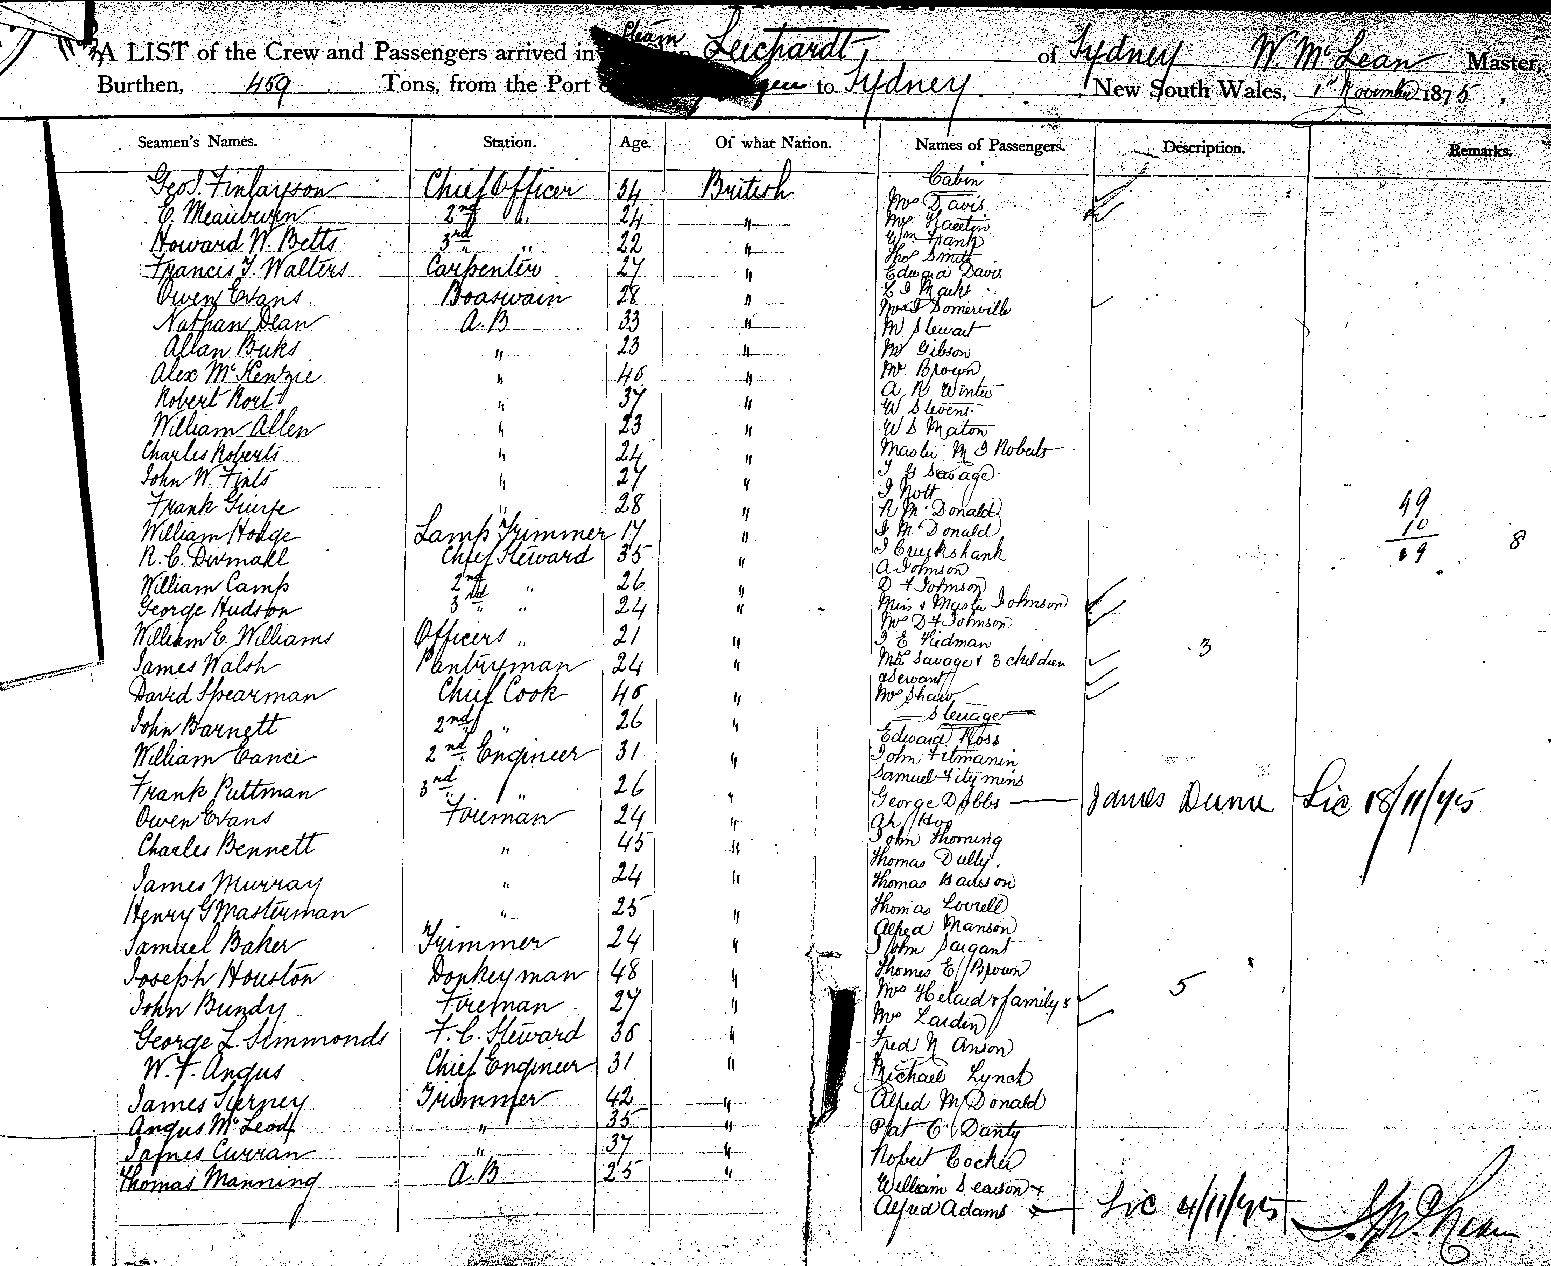 A LIST of the Crew and Passengers arrived in Steam Leichardt of Sydney W. McLean Master,
Burthen, 459 Tons, from the Port to Sydney New South Wales, 1st November 1875
Seamen's Names. Station. Age. Of what Nation. Names of Passengers. Description. Remarks.
Cabin
Geo. J. Finlayson Chief Officer 34 British Mrs Davis
2nd " 24 "
Howard W. Betts 3rd " " 22 " Wm Frank
Francis J. Walters Carpenter 27 " Thos Smith
Edward Davis
Owen Evans Boaswain 28 "
Somerville
Nathan Dean A.B 33 " Stewart
Allan Buks " 23 " Gibson
Alex McKenzie " 40 " Mr Brown
Robert Rort " 37 " A R Winter
W Stevens
William Allen " 23 " W S Maton
Charles Roberts " 24 " Master M J Roberts
John W. " 27 " Savage
J Nott
Frank " 28 " R McDonald 59
William Hodge Lamp Trimmer 17 " J McDonald 10
R. C. Chief Steward 35 " J Cruikshank 69 8
A Johnson
William Camp 2nd " 26 " D F Johnson
George Hudson 3rd " " 24 " Miss & Master Johnson
Mrs D F Johnson
William E. Williams Officers " 21 " J E Kidman 3
James Walsh Pantryman 24 " Mrs Savage & 3 children
& Servant
David Spearman Chief Cook 40 " Mrs Shaw
Steerage
John Barnett 2nd " 26 " Edward Ross
William Cance 2nd Engineer 31 " John
Samuel
Frank Puttman 3rd " " 26 " George Dobbs — James Dunn Lic 18/11/75
Owen Evans Foreman 24 " Ah Hoo
Charles Bennett " 45 " John Thorning
Thomas Dully
James Murray " 24 " Thomas
Henry G Masterman " 25 " Thomas Lovell
Alfred Manson
Samuel Baker Trimmer 24 " John Sargant
Joseph Houston Donkeyman 48 " Thomas E Brown
John Bundy Fireman 27 " Mrs & family 5
Mrs Larden
George L. Simmonds F. C. Steward 30 " Fred N Anson
W. F. Angus Chief Engineer 31 " Michael Lynch
James Tierney Trimmer 42 " Alfred McDonald
Angus McLeod " 35 " Pat C Danty
James Curran " 37 " Robert Cocker
Thomas Manning A.B 25 " William Searson
Alfred Adams — Lic 4/11/75